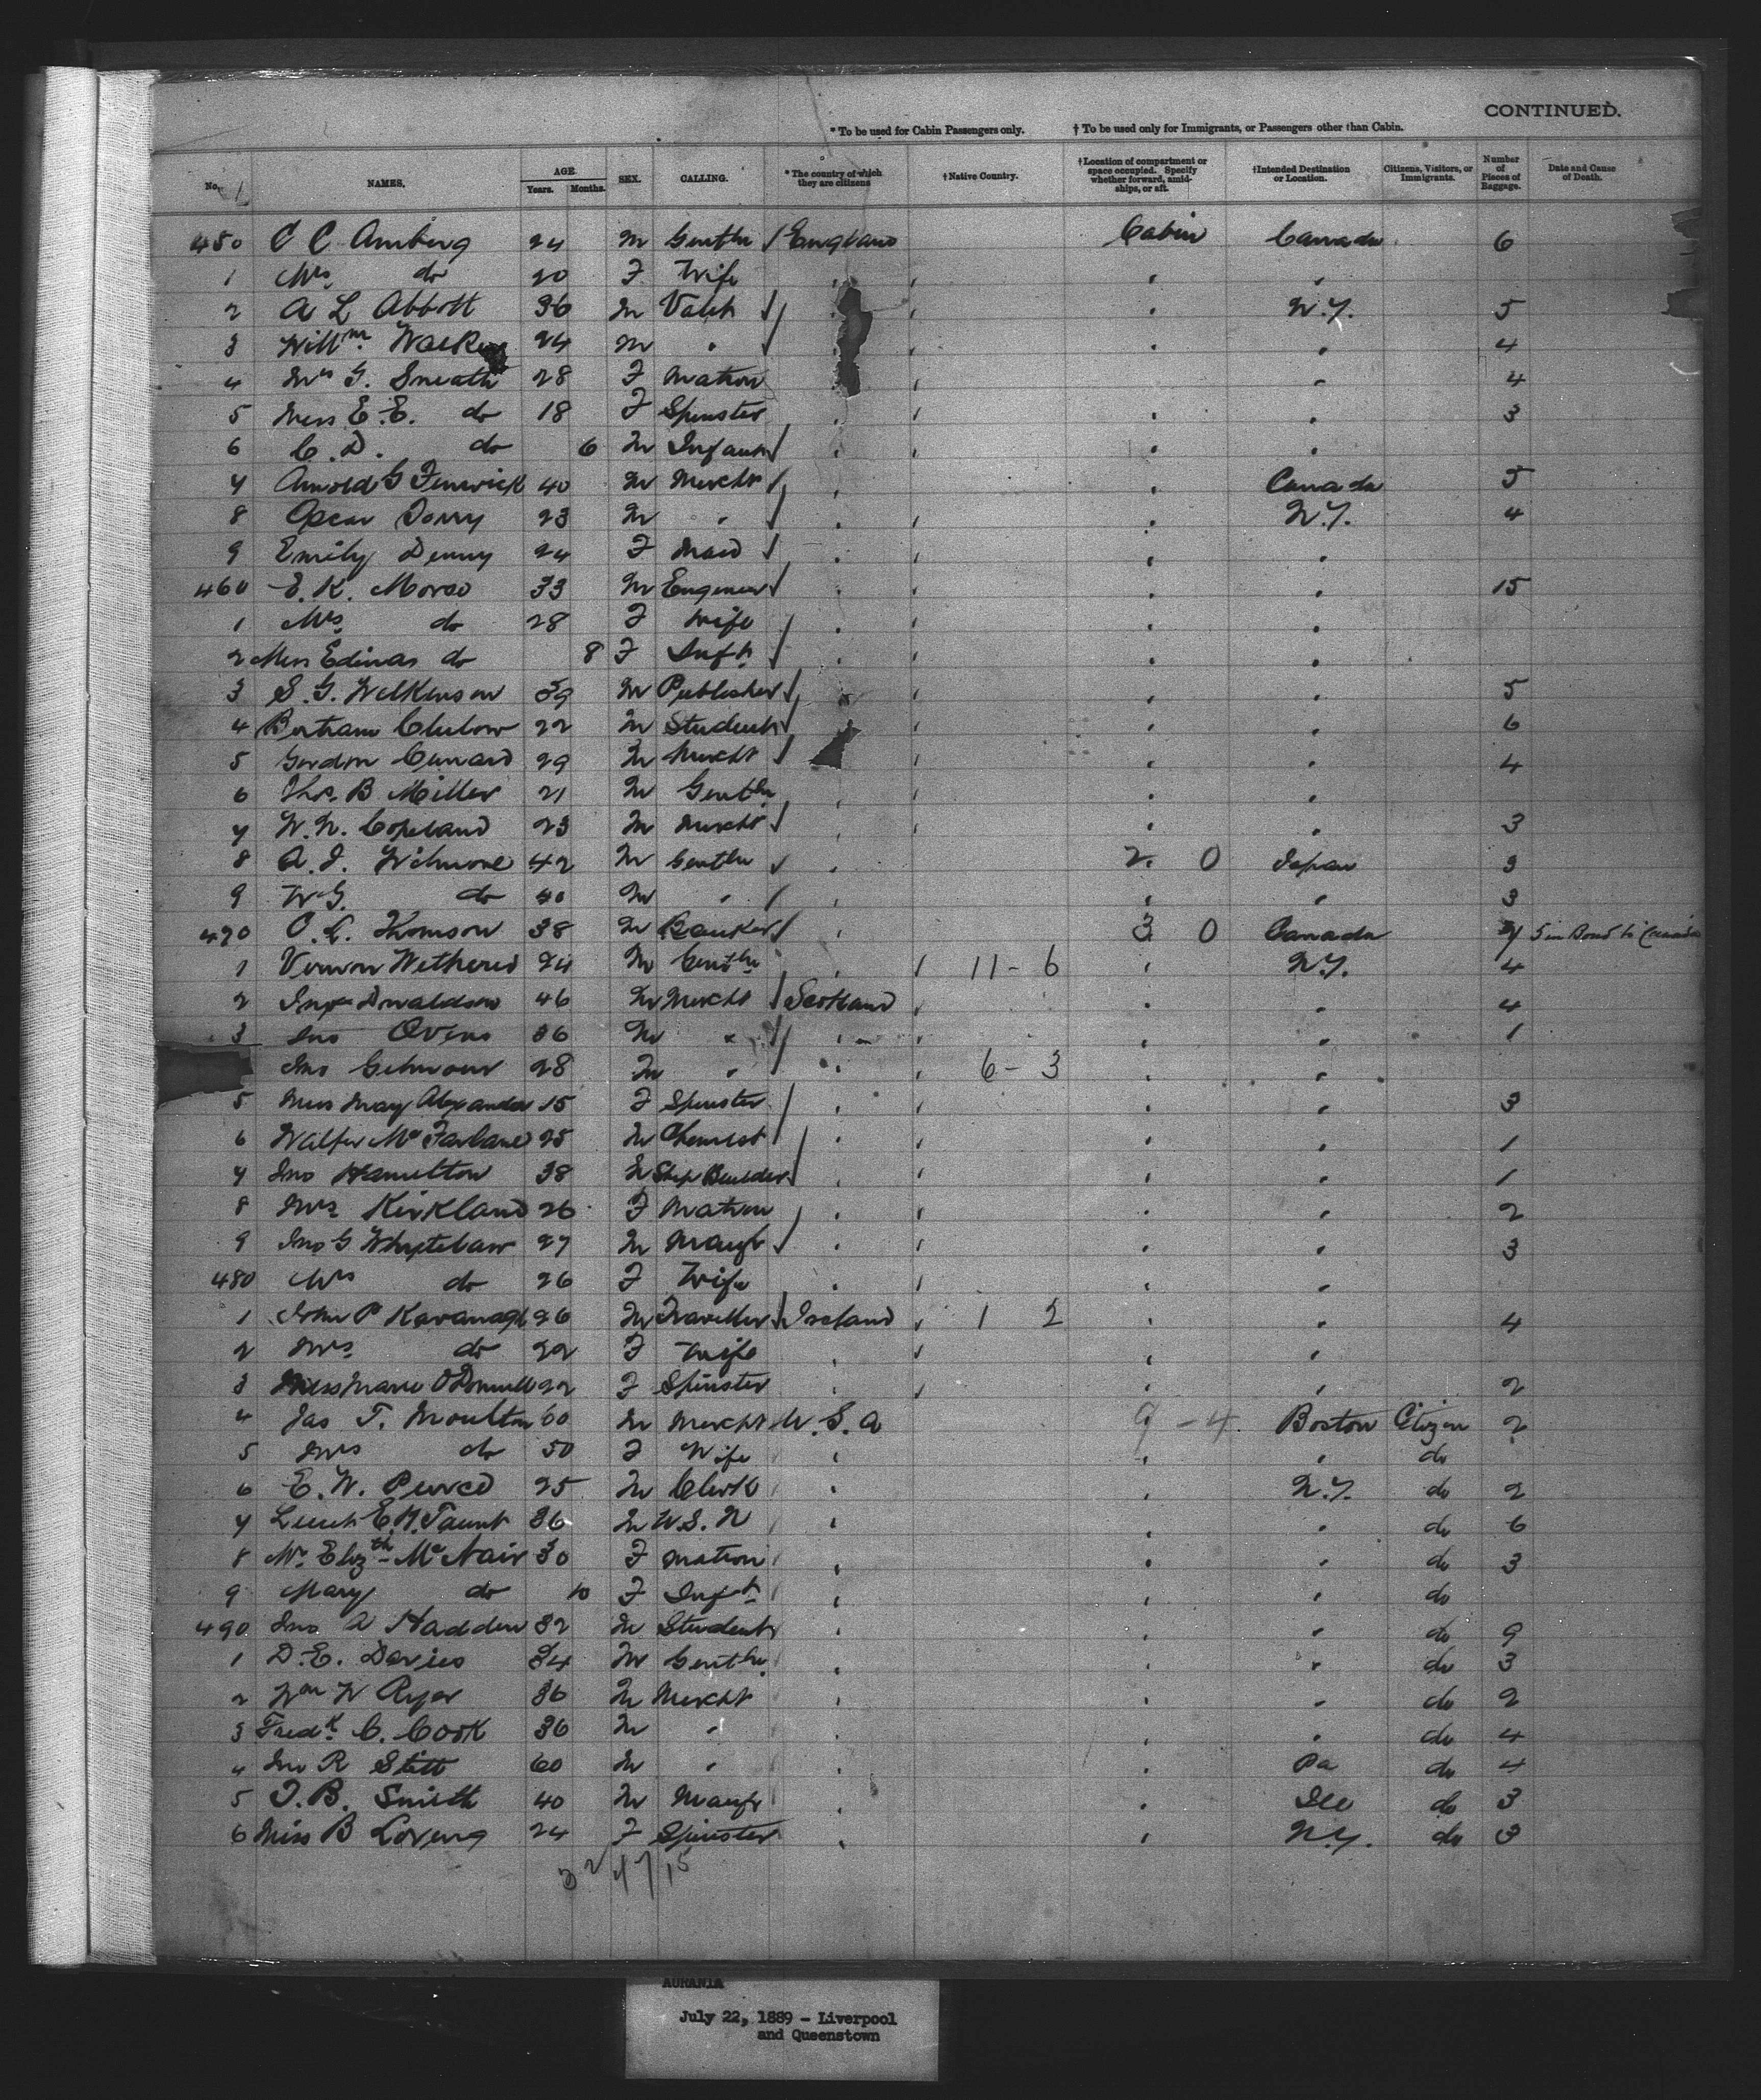 CONTINUED.
* To be used for Cabin Passengers only. † To be used only for Immigrants, or Passengers other than Cabin.
No. NAMES. AGE. Years. Months. SEX. CALLING. * The country of which they are citizens †Native Country. †Location of compartment or space occupied. Specify whether forward, amidships, or aft. †Intended Destination or Location. Citizens, Visitors, or Immigrants. Number of Pieces of Baggage. Date and Cause of Death.
450 C C Amberg 24 M Gentln England Cabin Canada 6
1 Mrs do 20 F Wife
2 A L Abbott 36 M Valet N.Y. 5
3 Willm Walker 24 M " 4
4 Mrs G. Sneath 28 F Matron 4
5 Miss E.E. do 18 F Spinster 3
6 C.D. do 6 M Infant
7 Arnold G Fenwick 40 M Mercht Canada 5
8 Oscar 23 M " N.Y. 4
9 Emily Denny 24 F Maid
460 E. K. Morse 33 M Engineer 15
1 Mrs do 28 F Wife
2 Miss do 8 F Inft
3 S. G. Wilkinson 39 M Publisher 5
4 Bertram Clulow 22 M Student 6
5 Gordon Cunard 29 M Mercht 4
6 Thos. B Miller 21 M Gentln
7 W. N. Copeland 23 M Mercht 3
8 A. J. Wilmore 42 M Gentln 2. 0 Japan 3
9 W G. do 40 M " 3
470 C. C. Thomson 38 M Banker 3 0 Canada 7 5 in Bond to Canada
1 Vernon Wethered 24 M Gentln 11 - 6 N.Y. 4
2 Donaldson 46 M Mercht Scotland 4
3 Jno Ovens 36 M " 1
Jno Gilmour 28 M " 6 - 3
5 Miss May Alexander 15 F Spinster 3
6 Walter McFarlane 25 M Chemist 1
7 Jno Hamilton 38 M Ship Builder 1
8 Mrs Kirkland 26 F Matron 2
9 Jno G Whytelaw 27 M Manfr 3
480 Mrs do 26 F Wife
1 John P Kavanagh 26 M Traveller Ireland 1 2 4
2 Mrs do 22 F Wife
3 Miss Marie O'Donnell 22 F Spinster 2
4 Jas T. Moulton 60 M Mercht U.S.A 9 - 4 Boston Citizen 2
5 Mrs do 50 F Wife do
6 E. W. Peirce 25 M Clerk N.Y. do 2
7 Lieut E.H. Taunt 36 M U.S.N do 6
8 Mrs Elizth McNair 30 F Matron do 3
9 Mary do 10 F Inft do
490 Jno A Hadden 32 M Student do 9
1 D.E. Davies 34 M Gentln do 3
2 Wm W Ryer 36 M Mercht do 2
3 Fredk C. Cook 36 M " do 4
4 Jno R Stitt 60 M " Pa do 4
5 J.B. Smith 40 M Manfr Ill do 3
6 Miss B Loveng 24 F Spinster N.Y. do 3
AURANIA
July 22, 1889 - Liverpool
and Queenstown